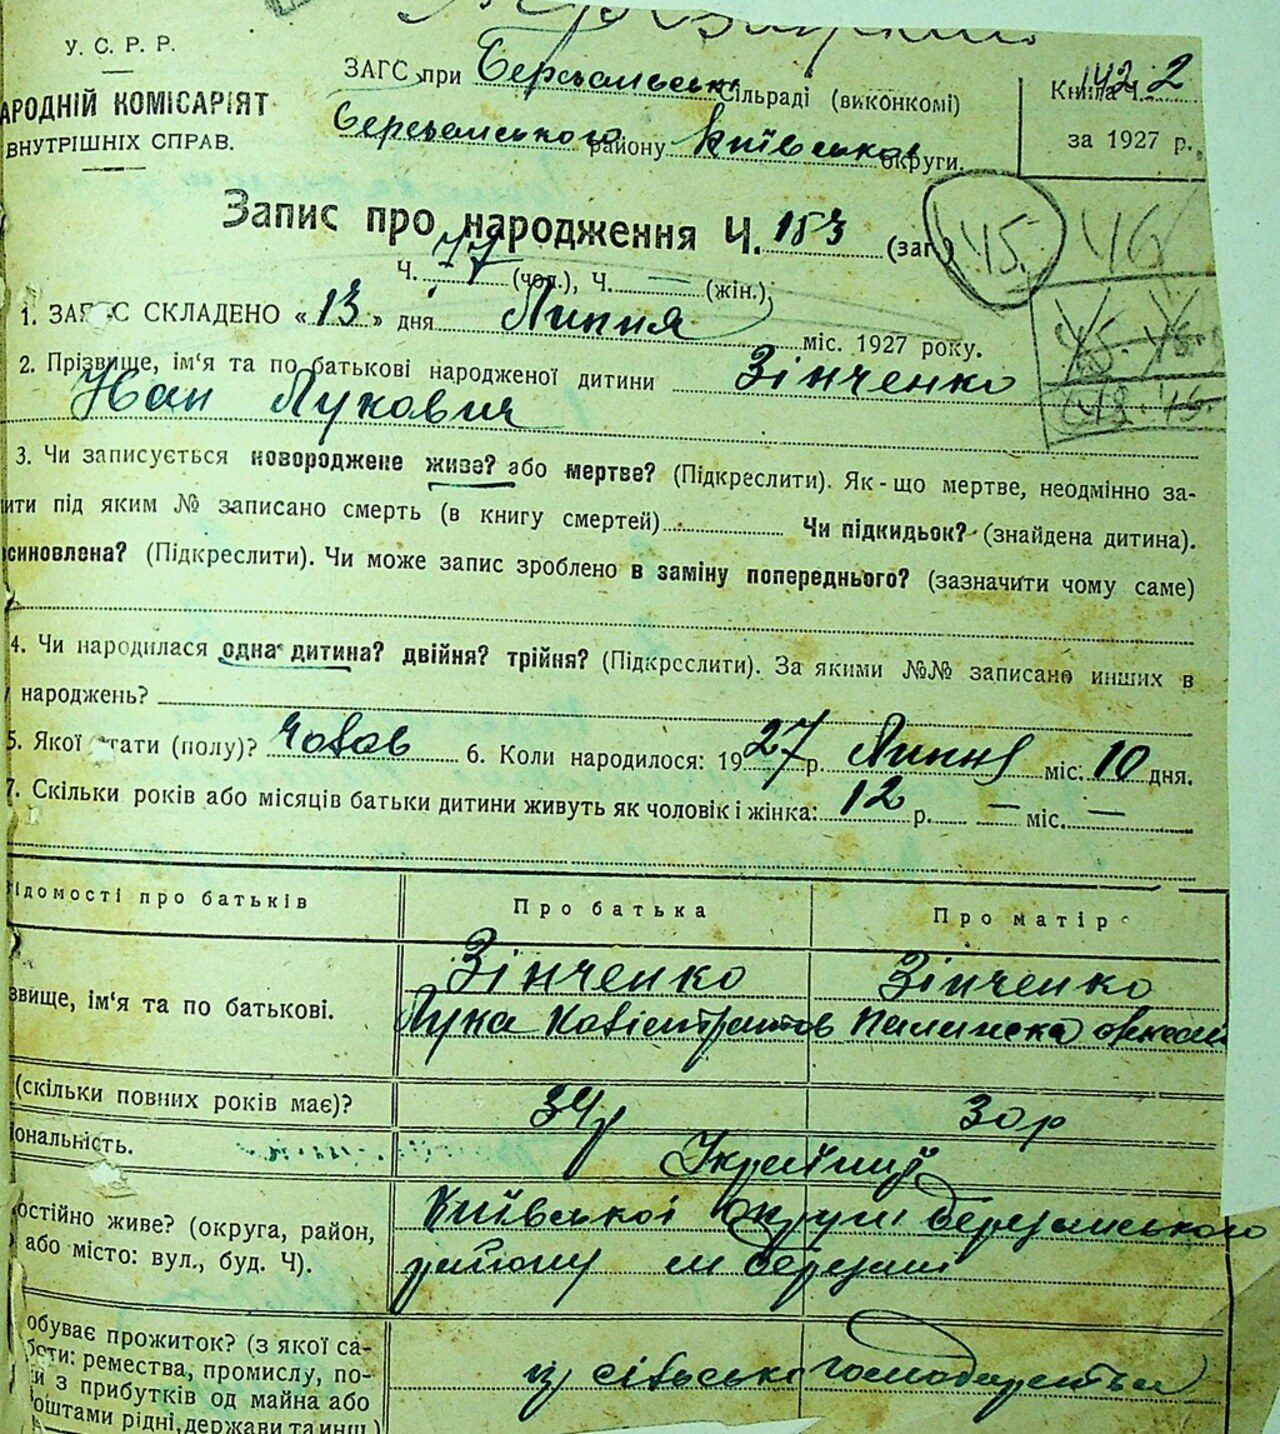 У. С. Р. Р.
АРОДНІЙ КОМІСАРІЯТ
ВНУТРІШНІХ СПРАВ.
ЗАГС при Березанській сільраді (виконкомі)
Березанського району Київської округи.
Книга Ч. 2
за 1927 р.
Запис про народження Ч. 153 (заг.)
Ч. 77 (чол.), Ч. — (жін.)
45. 46
1. ЗАПИС СКЛАДЕНО «13» дня Липня міс. 1927 року.
2. Прізвище, ім'я та по батькові народженої дитини Зінченко
Іван Лукович
3. Чи записується новороджене живе? або мертве? (Підкреслити). Як-що мертве, неодмінно за-
ити під яким № записано смерть (в книгу смертей) Чи підкидьок? (знайдена дитина).
синовлена? (Підкреслити). Чи може запис зроблено в заміну попереднього? (зазначити чому саме)
4. Чи народилася одна дитина? двійня? трійня? (Підкреслити). За якими №№ записано инших в
народжень?
5. Якої стати (полу)? чолов 6. Коли народилося: 1927 р. Липня міс. 10 дня.
7. Скільки років або місяців батьки дитини живуть як чоловік і жінка: 12 р. — міс. —
ідомості про батьків Про батька Про матір
звище, ім'я та по батькові. Зінченко Зінченко
Лука Пилипска
(скільки повних років має)? 34р 30р
іональність. Українці
остійно живе? (округа, район, Київської округи Березанського
або місто: вул., буд. Ч). району м Березані
обуває прожиток? (з якої са-
боти: ремества, промислу, по- із сільсько господарства
и з прибутків од майна або
оштами рідні, держави та инш.)